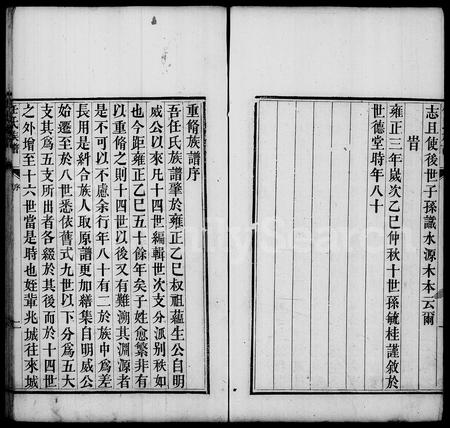 志且使後世子孫識水源木本云爾
旹
雍正三年歲次乙巳仲秋十世孫毓桂謹敘於
世德堂時年八十
重脩族譜序
吾任氏族譜肇於雍正乙巳叔祖蘊生公自明
威公以來凡十四世編輯世次支分派別秩如
也今距雍正乙巳五十餘年矣子姓愈繁非有
以重脩之則十四世以後又有難溯其淵源者
是不可以不慮余行年八十有二於族中為差
長用是糾合族人取原譜更加繕集自明威公
始遷至於八世悉依舊式九世以下分為五大
支其為五支所出者各綴於其後而於十四世
之外增至十六世當是時也姪輩兆城往來城
任氏族譜
序